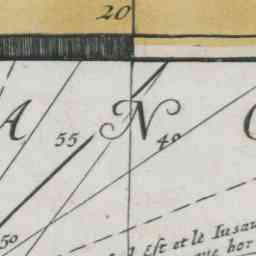 20
A N
55 40
50
Est et le Iusau
hor